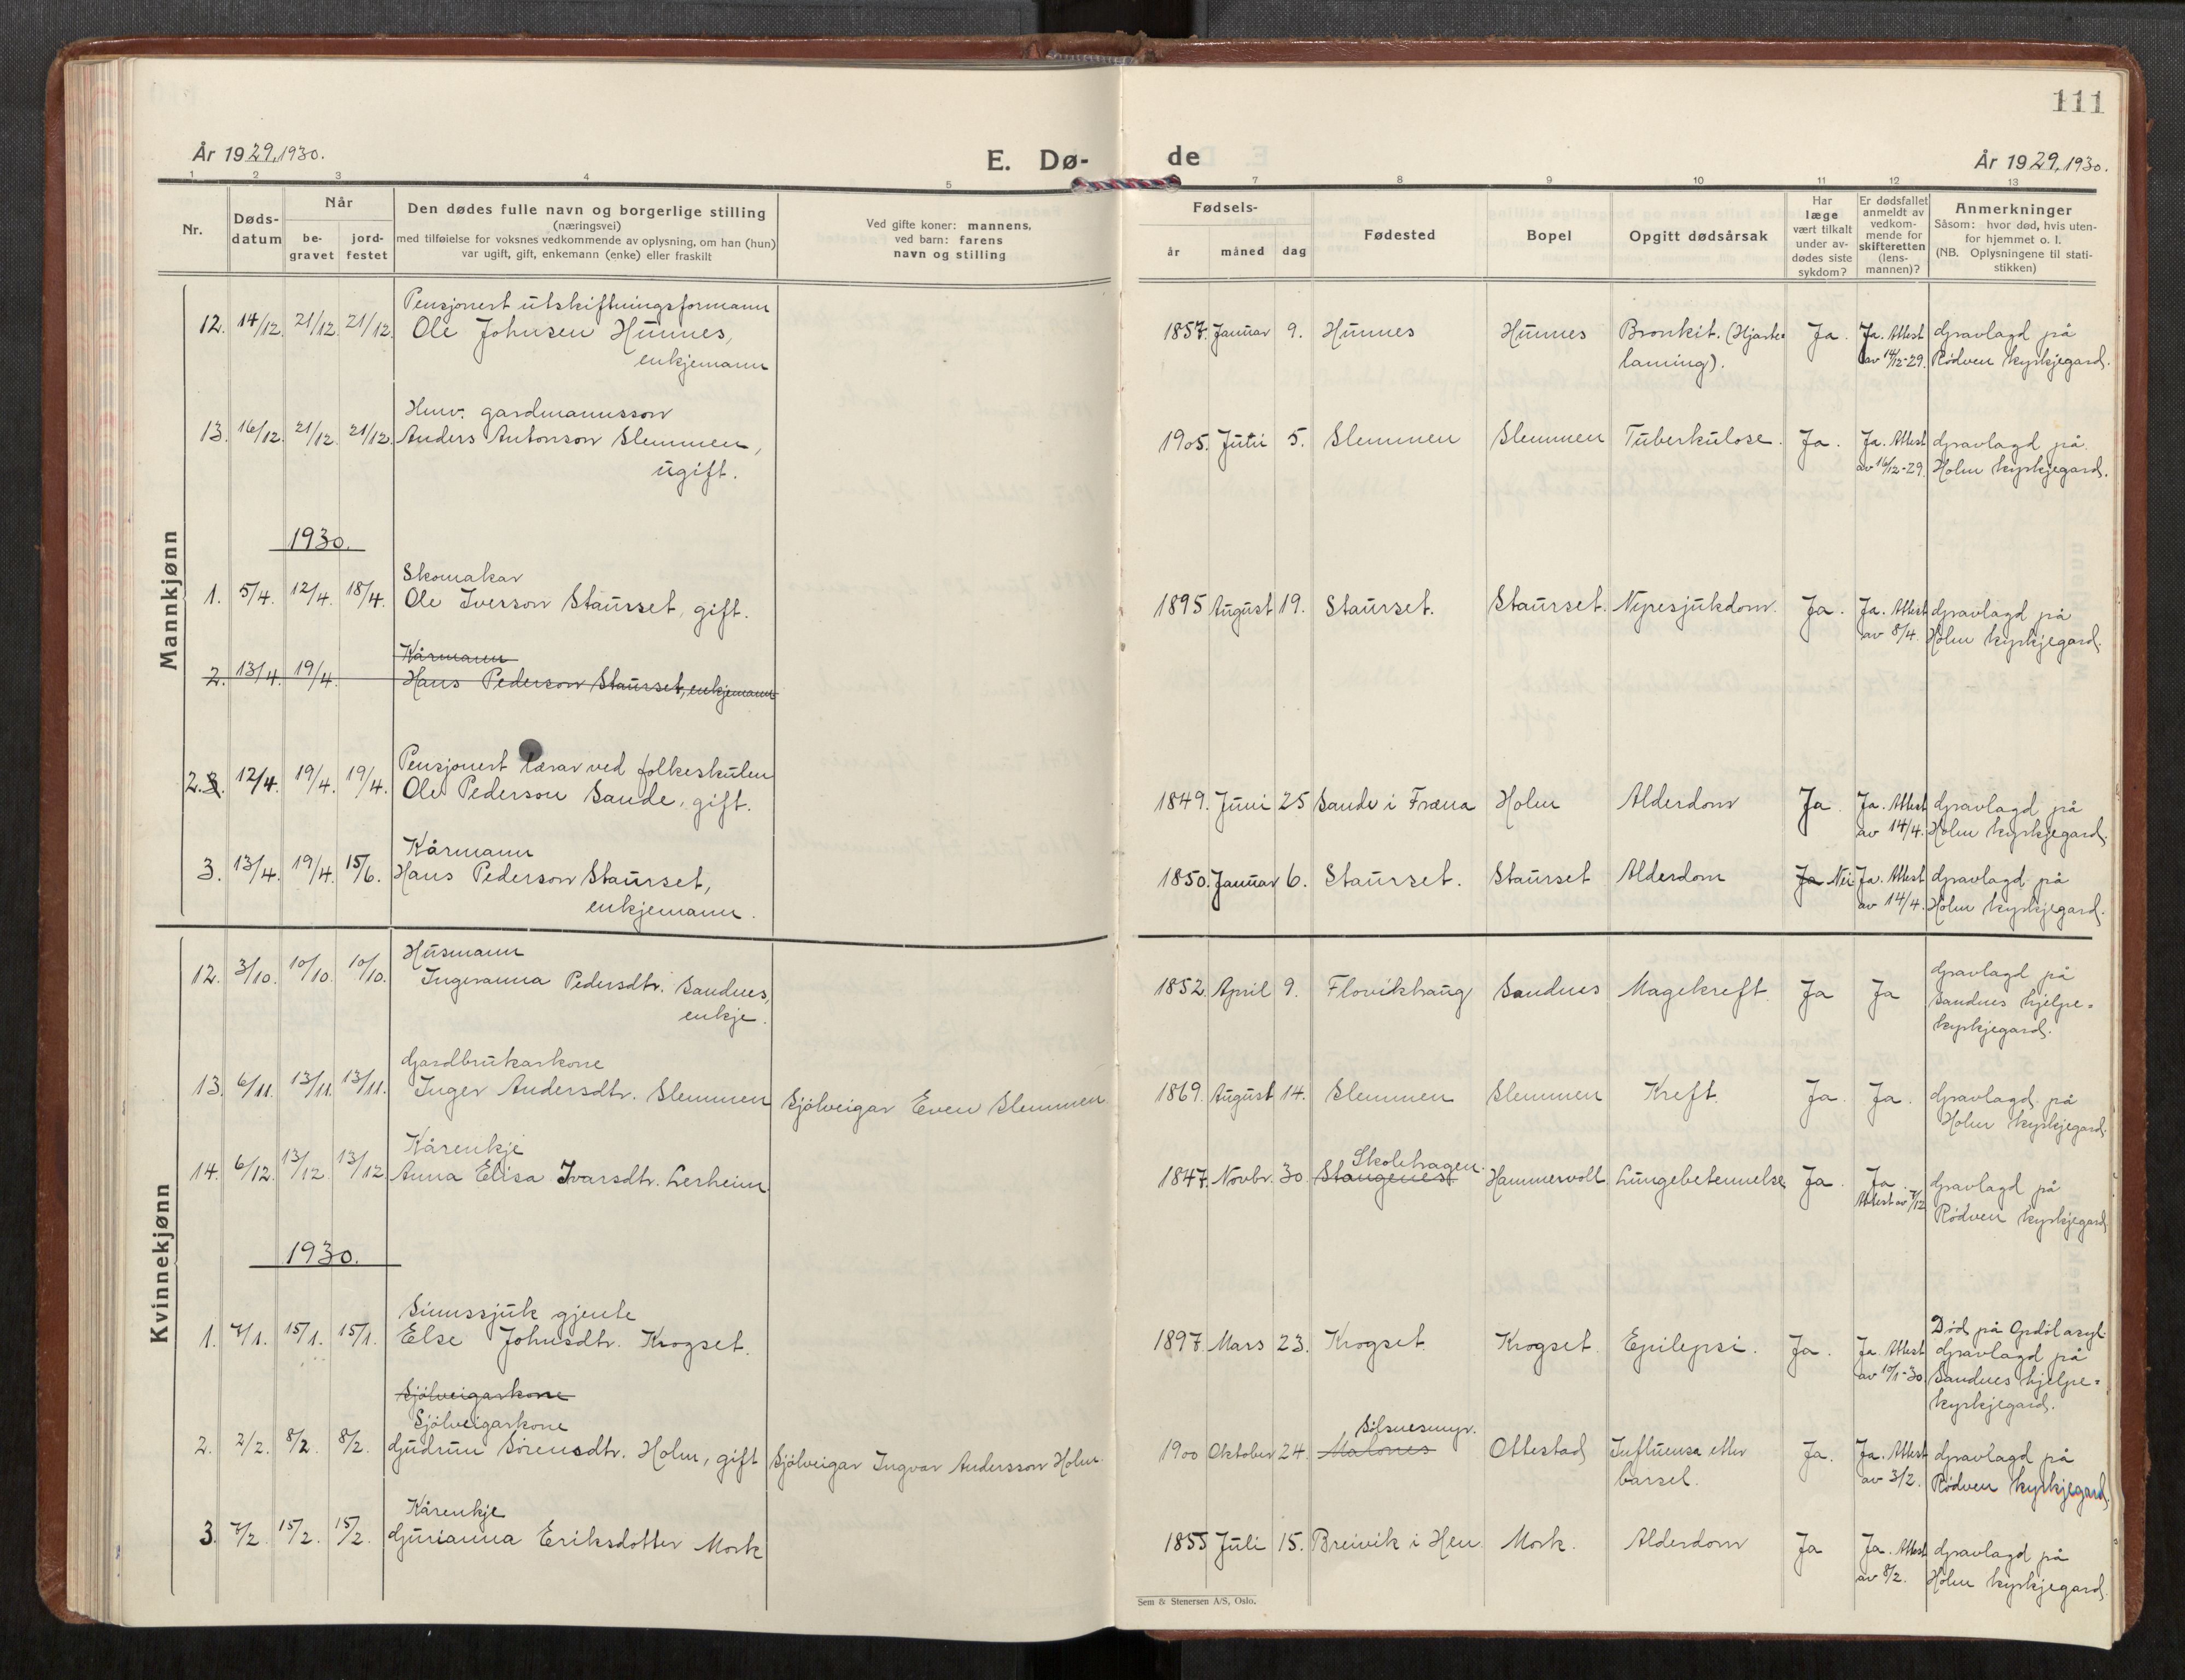 111
År 1929, 1930.
E. Dø-
de
År 1929, 1930.
1 2 3 4 5 7 8 9 10 11 12 13
Nr.
Døds-
datum
Når
be-
gravet
jord-
festet
Den dødes fulle navn og borgerlige stilling
(næringsvei)
med tilføielse for voksnes vedkommende av oplysning, om han (hun)
var ugift, gift, enkemann (enke) eller fraskilt
Ved gifte koner: mannens,
ved barn: farens
navn og stilling
Fødsels-
år måned dag
Fødested
Bopel
Opgitt dødsårsak
Har
læge
vært tilkalt
under av-
dødes siste
sykdom?
Er dødsfallet
anmeldt av
vedkom-
mende for
skifteretten
(lens-
mannen)?
Anmerkninger
Såsom: hvor død, hvis uten-
for hjemmet o. l.
(NB. Oplysningene til stati-
stikken)
Mannkjønn
Pensjonert utskiftningsformann
12. 14/12. 21/12. 21/12. Ole Johnsen Hunnes, 1857. Januar 9. Hunnes Hunnes Bronkit. (Hjarte- Ja. Ja. Attest Gravlagd på
enkjemann laming). av 14/12-29. Rødven kyrkjegard.
Hmv. gardmannsson
13. 16/12. 21/12. 21/12. Anders Antonson Slemmen, 1905. Juni 5. Slemmen Slemmen Tuberkulose. Ja. Ja. Attest Gravlagd på
ugift. av 16/12-29. Holm kyrkjegard.
1930.
Skomakar
1. 5/4. 12/4. 18/4. Ole Iverson Staurset, gift. 1895 August 19. Staurset. Staurset. Nyresjukdom. Ja. Ja. Attest Gravlagd på
av 8/4. Holm kyrkjegard.
Kårmann
2. 13/4. 19/4. Hans Pederson Staurset, enkjemann
Pensjonert lærar ved folkeskulen
2. 3. 12/4. 19/4. 19/4. Ole Pederson Sande, gift. 1849. Juni 25 Sande i Fræna Holm Alderdom Ja. Ja. Attest Gravlagd på
av 14/4. Holm kyrkjegard.
Kårmann
3. 13/4. 19/4. 15/6. Hans Pederson Staurset, 1850. Januar 6. Staurset. Staurset Alderdom Ja Nei Ja. Attest Gravlagd på
enkjemann. av 14/4. Holm kyrkjegard.
Kvinnekjønn
Husmann
12. 3/10. 10/10. 10/10. Ingeranna Pedersdtr. Sandnes, 1852. April 9. Flovikhaug Sandnes Magekreft. Ja Ja Gravlagd på
enkje. Sandnes hjelpe-
kyrkjegard.
Gardbrukarkone
13. 6/11. 13/11. 13/11. Inger Andersdtr. Slemmen Sjølveigar Even Slemmen 1869. August 14. Slemmen Slemmen Kreft. Ja. Ja. Gravlagd på
Holm kyrkjegard.
Kårenkje Skolehagen.
14. 6/12. 13/12. 13/12. Anna Elisa Ivarsdtr. Lerheim. 1847. Novbr. 30. Stangenes Hammervoll Lungebetennelse Ja. Ja. Gravlagd på
Attest av 7/12 Rødven kyrkjegard
1930.
Sinnssjuk gjente Død på Opdøl asyl.
1. 7/1. 15/1. 15/1. Else Johnsdtr. Krogset. 1897. Mars 23. Krogset. Krogset. Epilepsi. Ja. Ja. Attest Gravlagd på
av 10/1-30 Sandnes hjelpe-
kyrkjegard.
Sjølveigarkone
Sjølveigarkone Sølsnesmyr.
2. 2/2. 8/2. 8/2. Gudrun Sørensdtr. Holm, gift Sjølveigar Ingvar Andersson Holm. 1900 Oktober 24. Malones Ottestad Influensa etter Ja. Ja. Attest Gravlagd på
barsel. av 3/2. Rødven kyrkjegard.
Kårenkje
3. 7/2. 15/2. 15/2. Gurianna Eriksdotter Mork 1855 Juli 15. Breivik i Hen. Mork. Alderdom Ja Ja. Attest Gravlagd på
av 8/2. Holm kyrkjegard.
Sem & Stenersen A/S, Oslo.